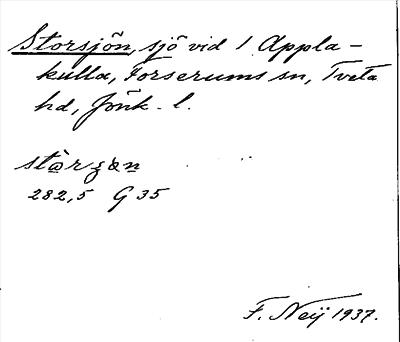 Storsjön, sjö vid 1 Appla-
kulla, Forserums sn, Tveta
hd, Jönk. l.
282,5 G 35
F. Neij 1937.